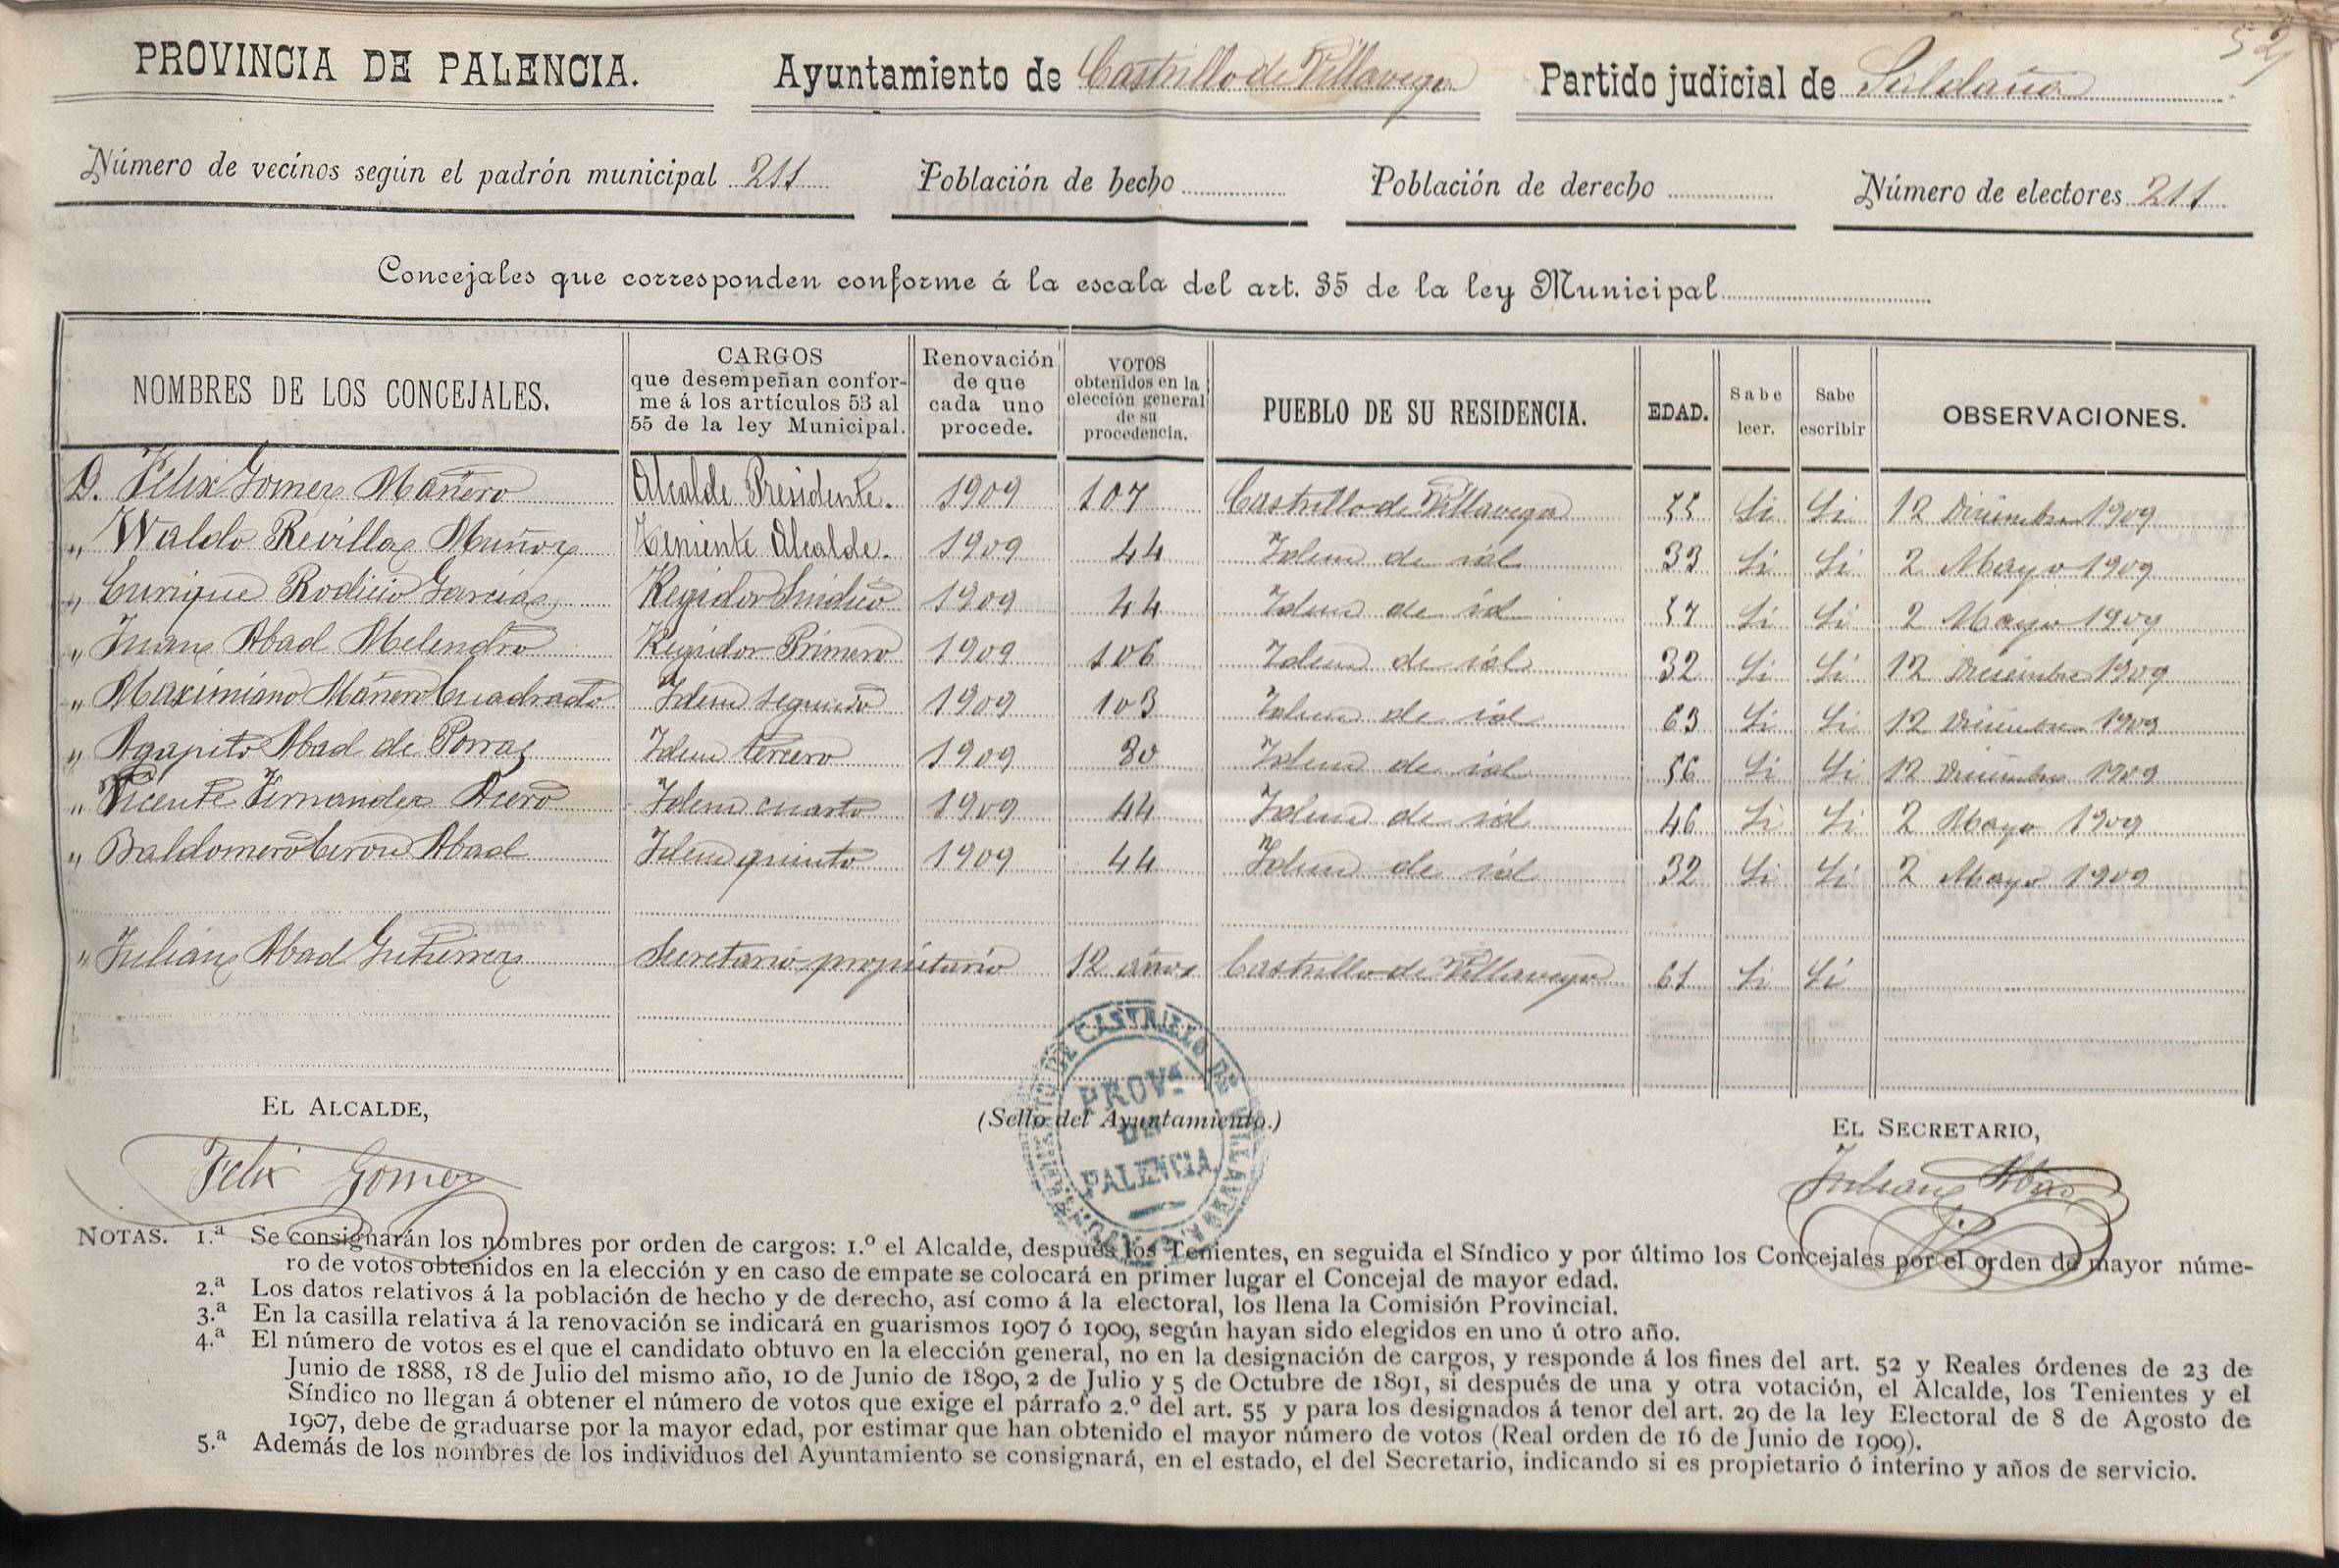 52
PROVINCIA DE PALENCIA. Ayuntamiento de Castrillo de Villavega Partido judicial de Saldaña
Número de vecinos según el padrón municipal 211 Población de hecho Población de derecho Número de electores 211
Concejales que corresponden conforme á la escala del art. 35 de la ley Municipal
NOMBRES DE LOS CONCEJALES. CARGOS que desempeñan conforme á los artículos 53 al 55 de la ley Municipal. Renovación de que cada uno procede. VOTOS obtenidos en la elección general de su procedencia. PUEBLO DE SU RESIDENCIA. EDAD. Sabe leer. Sabe escribir OBSERVACIONES.
D. Felix Gomez Mañero Alcalde Presidente. 1909 107 Castrillo de Villavega 55 Si Si 12 Diciembre 1909
" Waldo Revilla Muñoz Teniente Alcalde. 1909 44 Idem de id 33 Si Si 2 Mayo 1909
" Enrique Rodicio Garcia Regidor Sindico 1909 44 Idem de id 57 Si Si 2 Mayo 1909
" Juan Abad Melendro Regidor Primero 1909 106 Idem de id 32 Si Si 12 Diciembre 1909
" Maximiano Mañero Cuadrado Idem segundo 1909 103 Idem de id 63 Si Si 12 Diciembre 1909
" Agapito Abad de Porras Idem tercero 1909 80 Idem de id 56 Si Si 12 Diciembre 1909
" Vicente Fernandez Acero Idem cuarto 1909 44 Idem de id 46 Si Si 2 Mayo 1909
" Baldomero Ceron Abad Idem quinto 1909 44 Idem de id 32 Si Si 2 Mayo 1909
" Julian Abad Gutierrez Secretario propietario 12 años Castrillo de Villavega 61 Si Si
EL ALCALDE, (Sello del Ayuntamiento.) EL SECRETARIO,
DE CASTRILLO DE VILLAVEGA
PROVª
DE
PALENCIA
Felix Gomez Julian Abad
NOTAS. 1.ª Se consignarán los nombres por orden de cargos: 1.º el Alcalde, después los Tenientes, en seguida el Síndico y por último los Concejales por el orden de mayor núme-
ro de votos obtenidos en la elección y en caso de empate se colocará en primer lugar el Concejal de mayor edad.
2.ª Los datos relativos á la población de hecho y de derecho, así como á la electoral, los llena la Comisión Provincial.
3.ª En la casilla relativa á la renovación se indicará en guarismos 1907 ó 1909, según hayan sido elegidos en uno ú otro año.
4.ª El número de votos es el que el candidato obtuvo en la elección general, no en la designación de cargos, y responde á los fines del art. 52 y Reales órdenes de 23 de
Junio de 1888, 18 de Julio del mismo año, 10 de Junio de 1890, 2 de Julio y 5 de Octubre de 1891, si después de una y otra votación, el Alcalde, los Tenientes y el
Síndico no llegan á obtener el número de votos que exige el párrafo 2.º del art. 55 y para los designados á tenor del art. 29 de la ley Electoral de 8 de Agosto de
1907, debe de graduarse por la mayor edad, por estimar que han obtenido el mayor número de votos (Real orden de 16 de Junio de 1909).
5.ª Además de los nombres de los individuos del Ayuntamiento se consignará, en el estado, el del Secretario, indicando si es propietario ó interino y años de servicio.